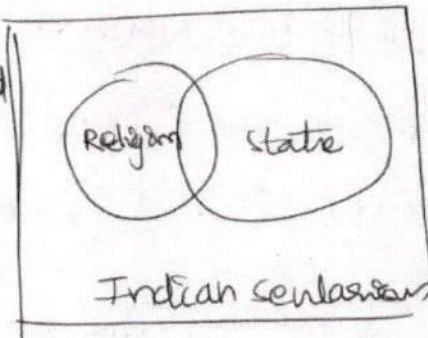 Religion State
Indian secularism